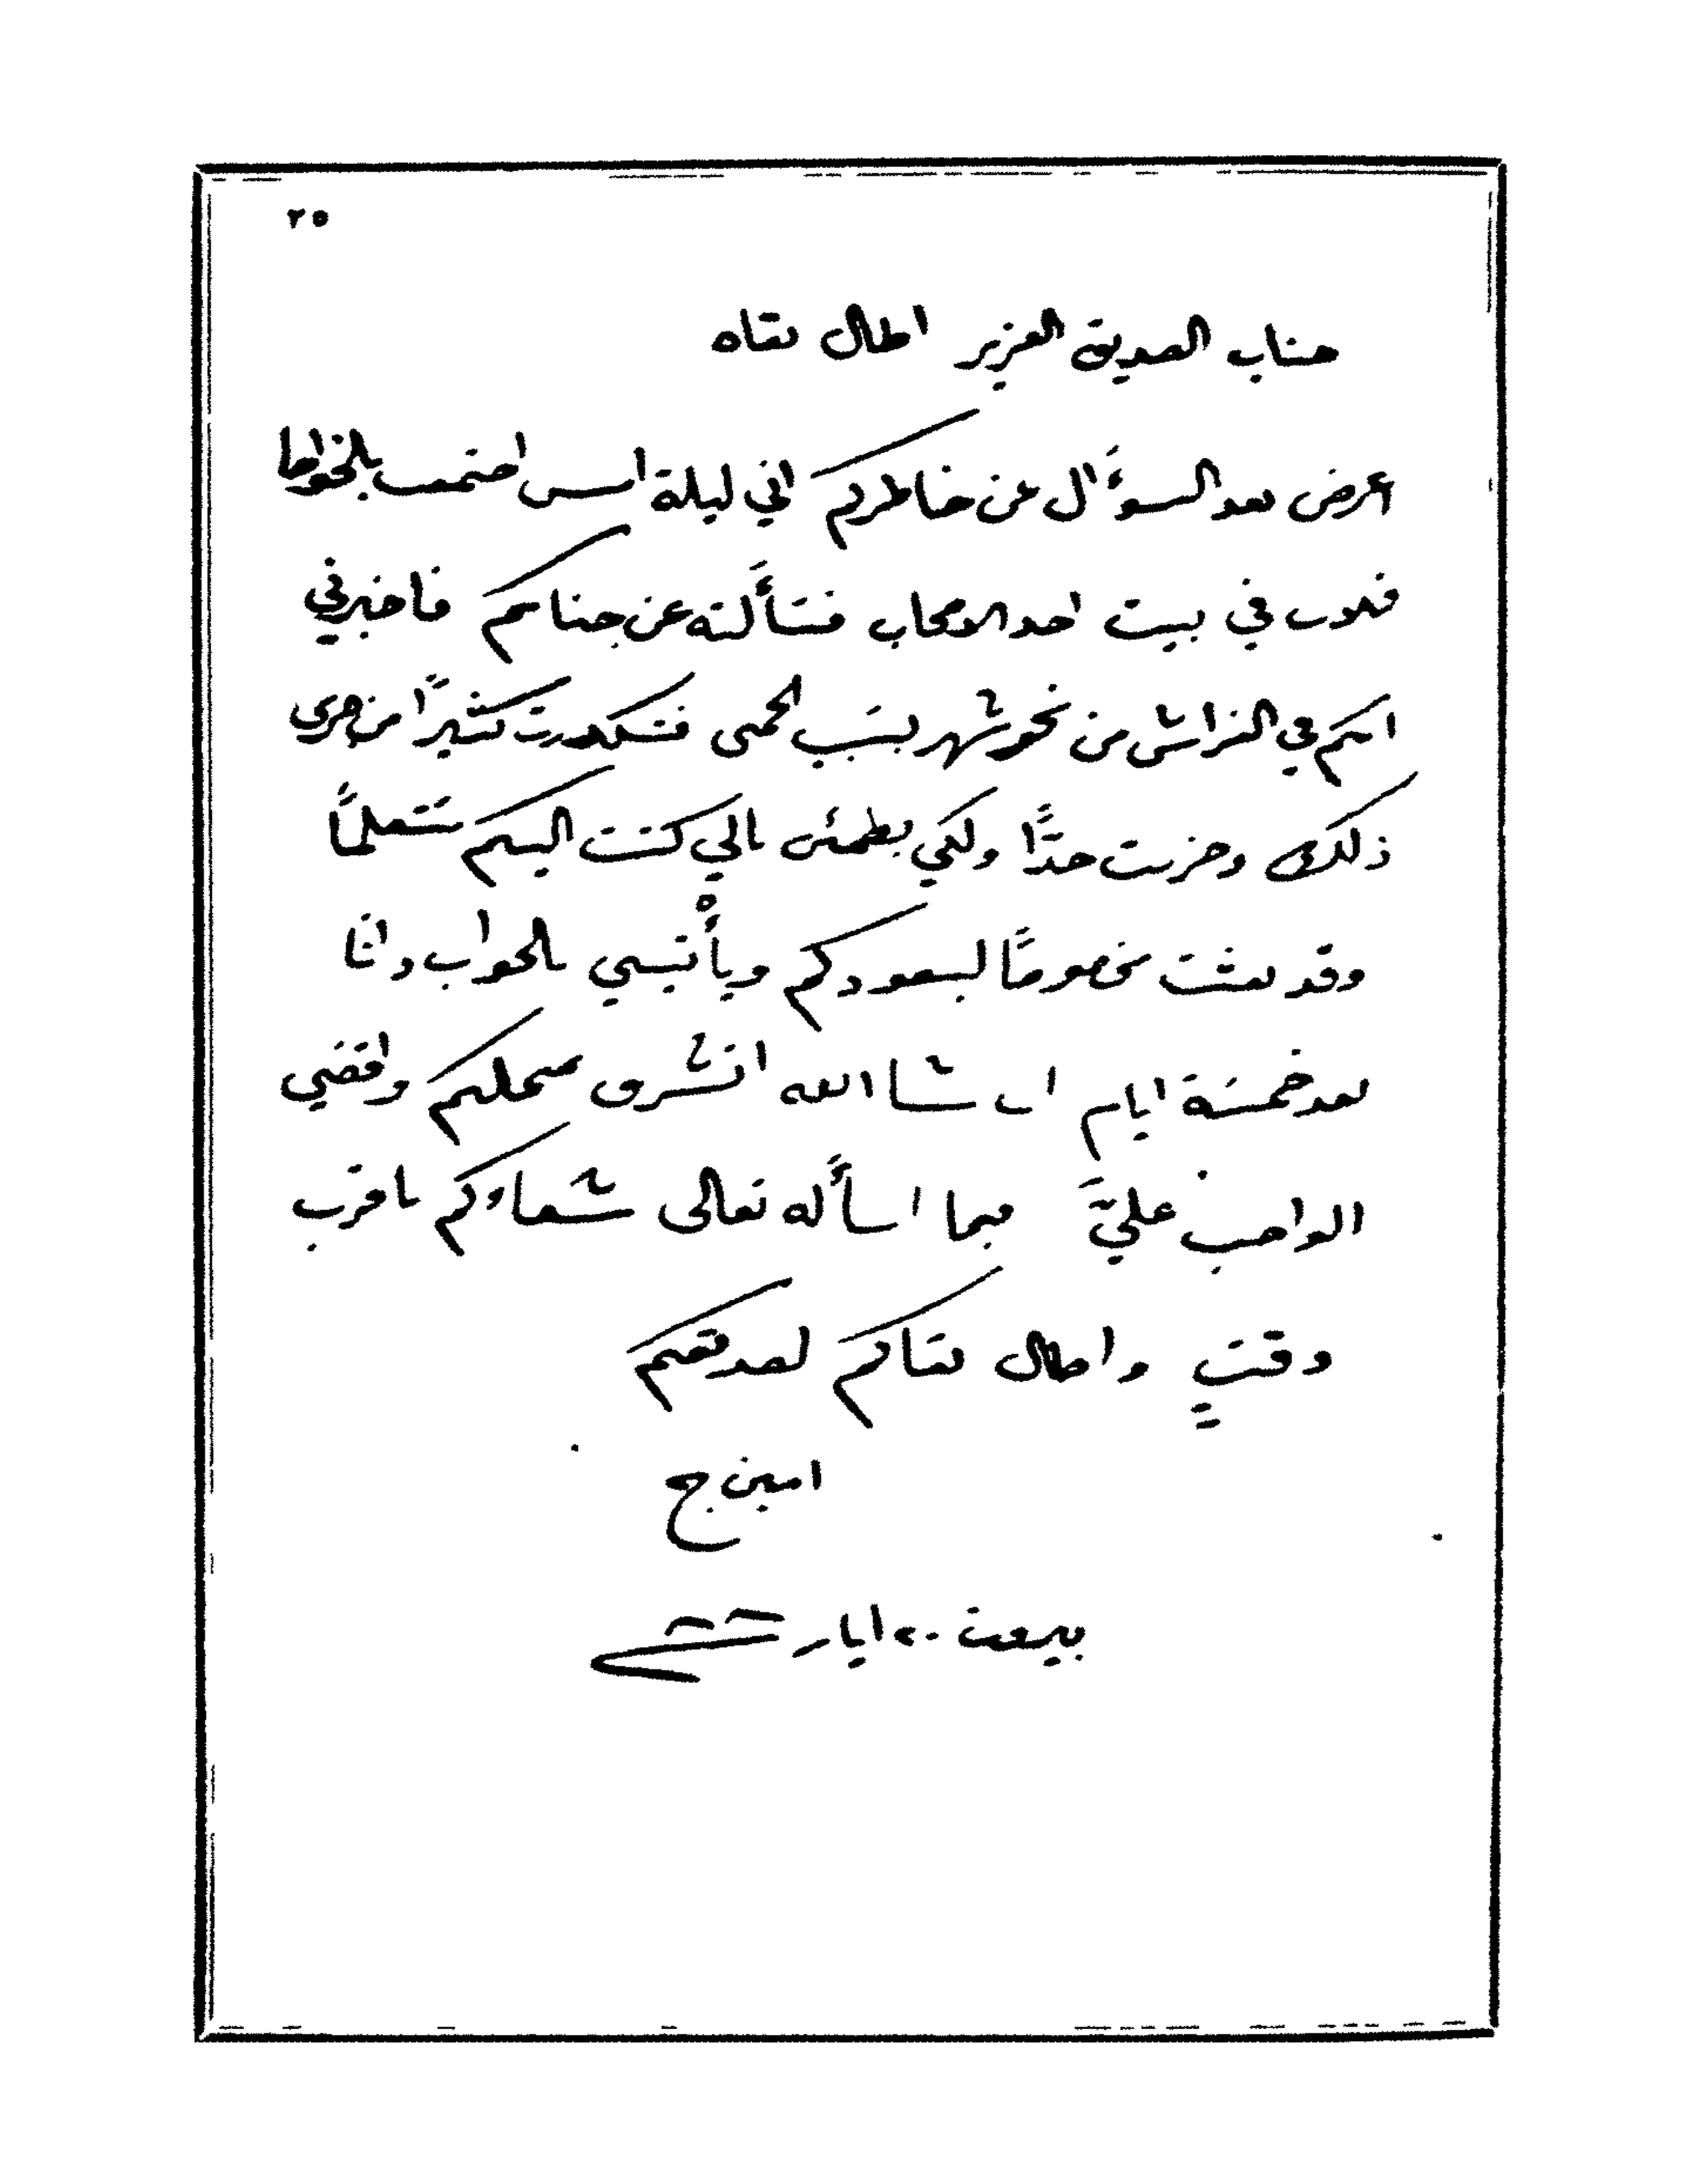 ٢٥
جناب الصديق العزيز اطال بقاه
اعرض بعد السوءَال عن خاطركم اني ليلة امس اجتمعت بالخواجا
فلان في بيت احد الاصحاب فسَأَلته عن جنابكم فاخبرني
انكم في الفراش من نحو شهر بسبب الحمى فتكدرت كثيرًا من جرى
ذلك وحزنت جدًّا ولكي يطمئن بالي كتبت اليكم مستعلمًا
وقد بعثت مخصوصًا ليعودكم ويأْتيني بالجواب وانا
بعد خمسة ايام ان شا الله اتشرف بمحلكم واقضي
الواجب عليَّ فيما اسأَله تعالى شفاوكم باقرب
وقتٍ واطال بقاكم لصديقكم
امين ج
بيروت ٢٠ ايار